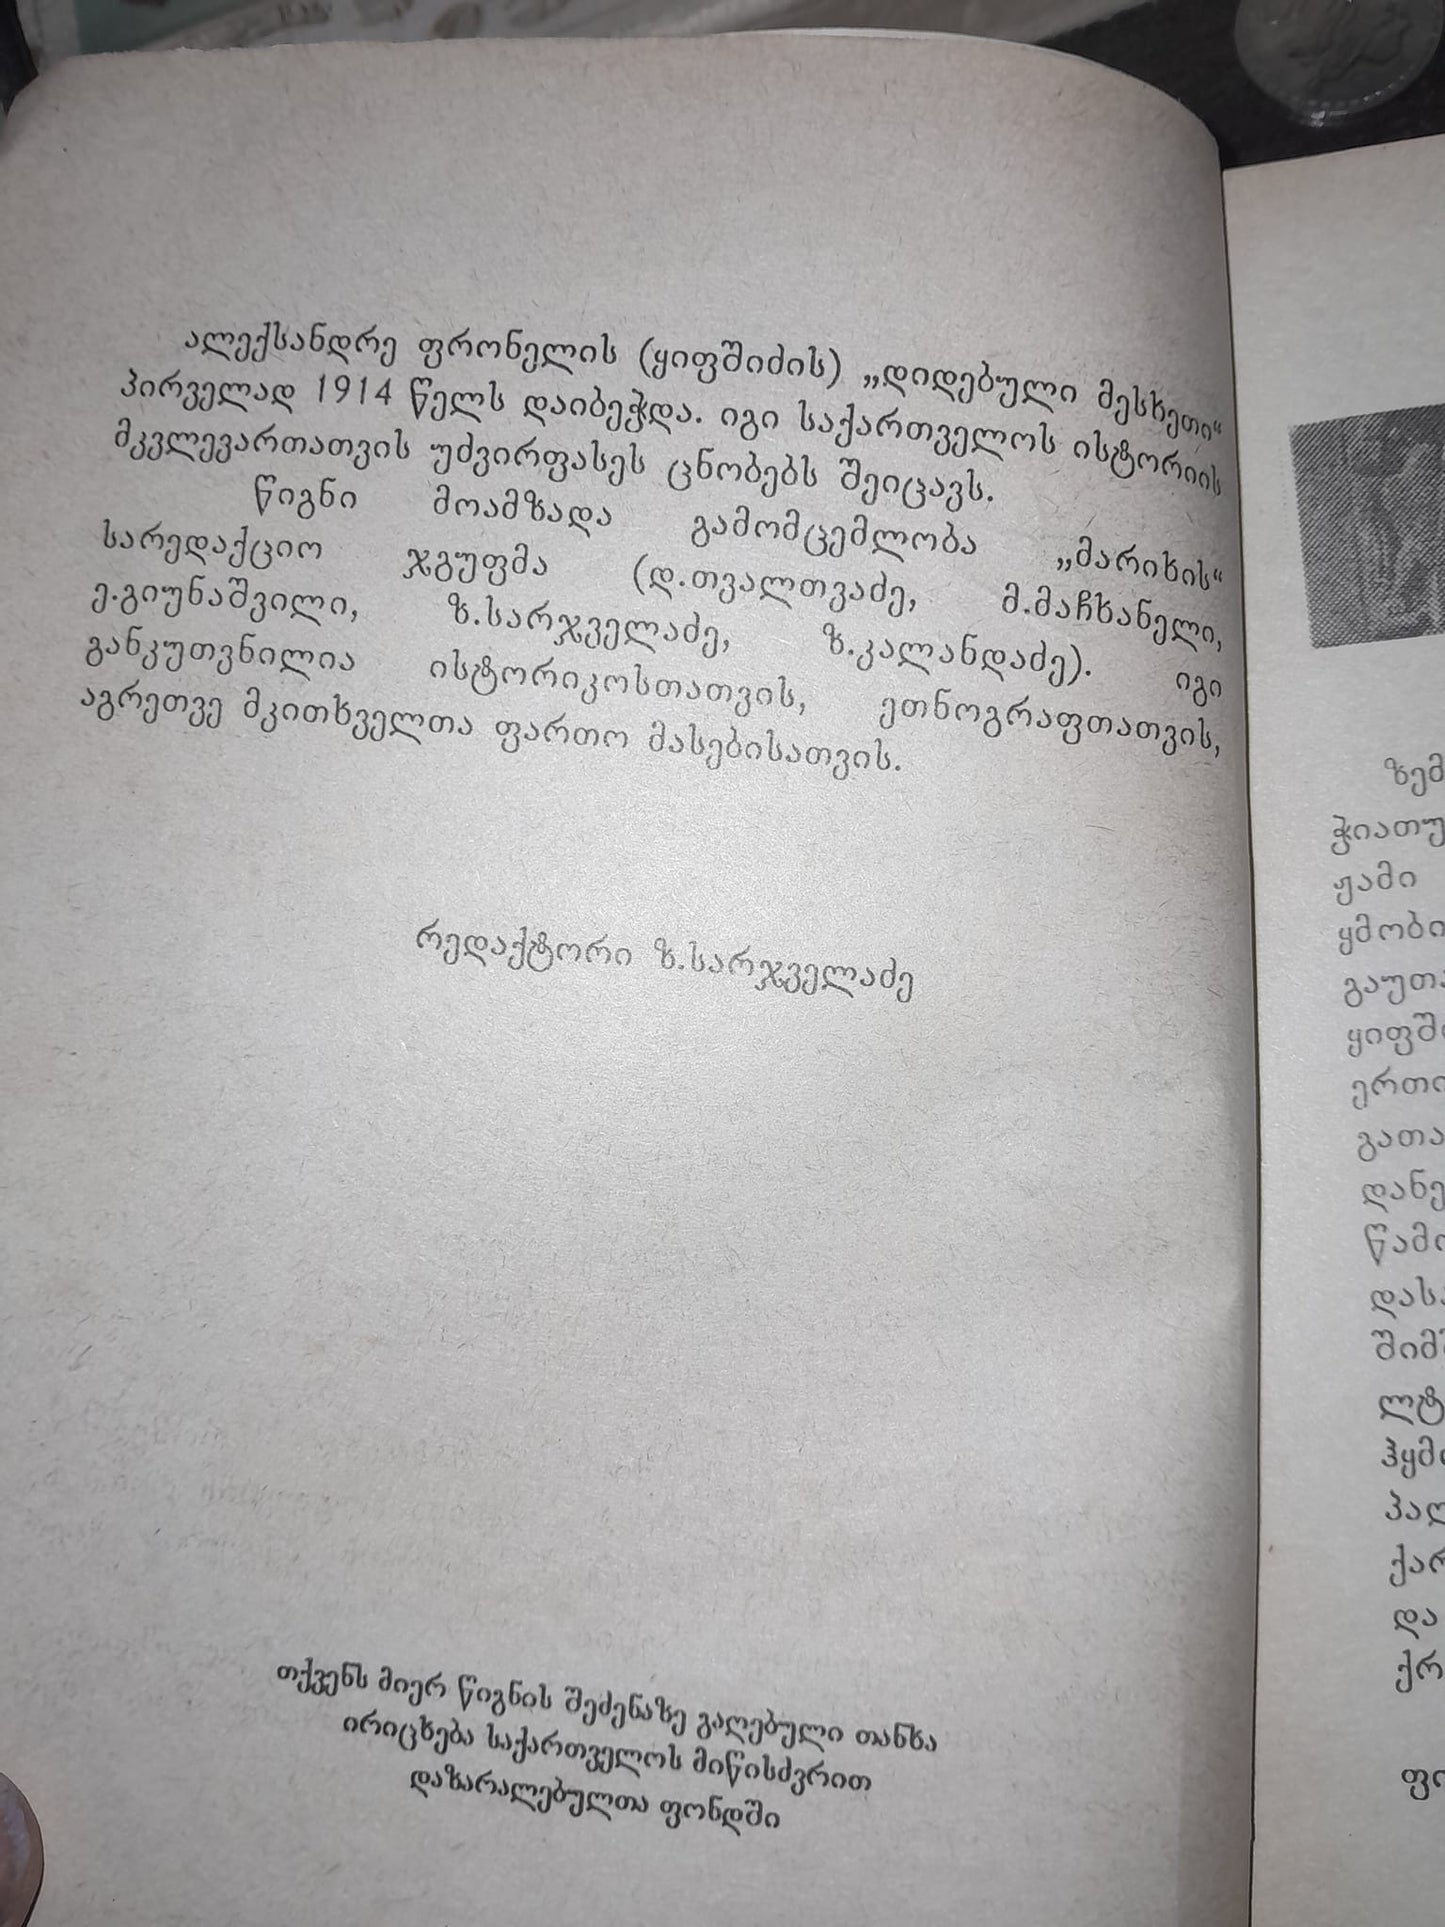 ალექსანდრე ფრონელის (ყიფშიძის) „დიდებული მესხეთი“
პირველად 1914 წელს დაიბეჭდა. იგი საქართველოს ისტორიის
მკვლევართათვის უძვირფასეს ცნობებს შეიცავს.
წიგნი მოამზადა გამომცემლობა „მარიხის“
სარედაქციო ჯგუფმა (დ.თვალთვაძე, მ.მაჩხანელი,
ე.გიუნაშვილი, ზ.სარჯველაძე, ზ.კალანდაძე). იგი
განკუთვნილია ისტორიკოსთათვის, ეთნოგრაფთათვის,
აგრეთვე მკითხველთა ფართო მასებისათვის.
რედაქტორი ზ.სარჯველაძე
თქვენს მიერ წიგნის შეძენაზე გაღებული თანხა
ირიცხება საქართველოს მიწისძვრით
დაზარალებულთა ფონდში
ზემ
ჭიათუ
ჟამი
ყმობი
გაუთა
ყიფში
ერთი
გათა
დანე
წამო
დასა
შიმშ
ლტ
ჰყმო
პაღ
ქარ
და
ქრ